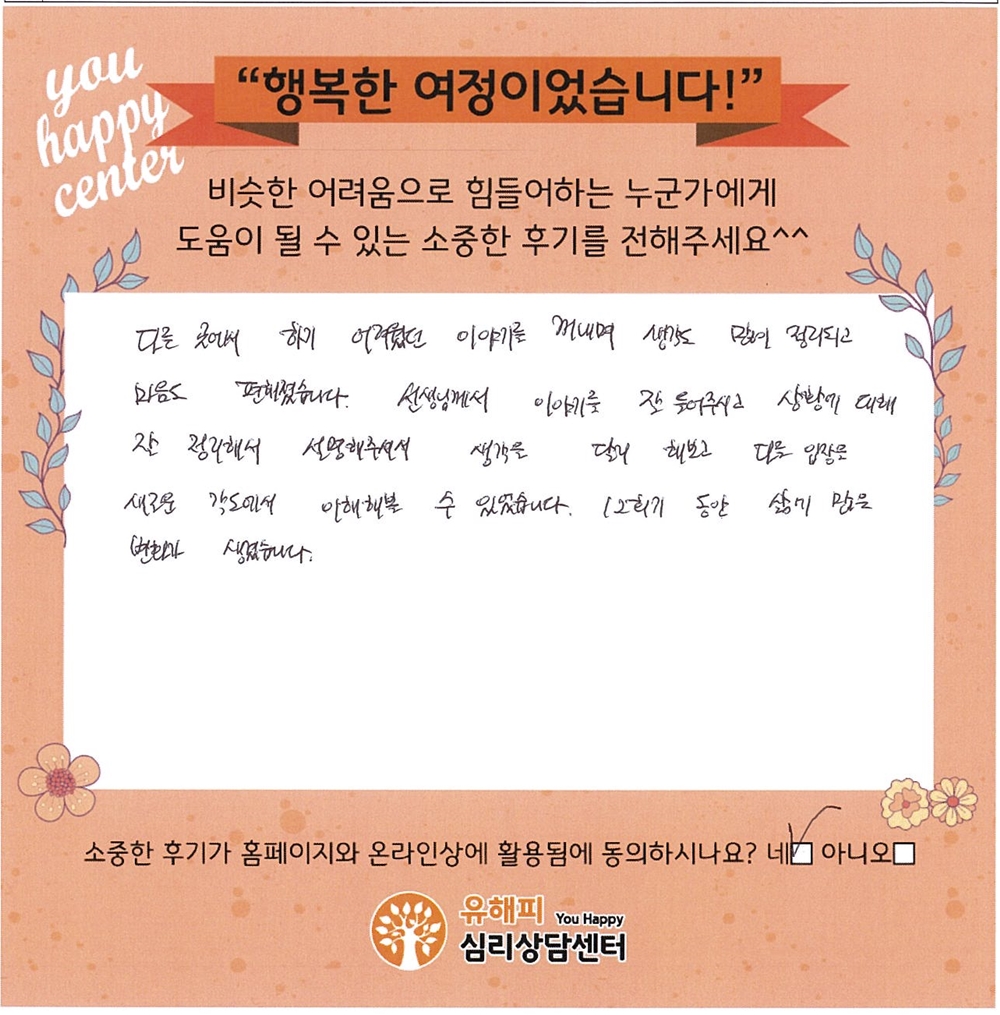 you
happy
center
“행복한 여정이었습니다!”
비슷한 어려움으로 힘들어하는 누군가에게
도움이 될 수 있는 소중한 후기를 전해주세요^^
다른 곳에서 하기 어려웠던 이야기를 꺼내며 생각도 많이 정리되고
마음도 편해졌습니다. 선생님께서 이야기를 잘 들어주시고 상황에 대해
잘 정리해서 설명해주셔서 생각을 달리 해보고 다른 입장을
새로운 각도에서 이해해볼 수 있었습니다. 12회기 동안 삶에 많은
변화가 생겼습니다.
소중한 후기가 홈페이지와 온라인상에 활용됨에 동의하시나요? 네 아니오
유해피 You Happy
심리상담센터